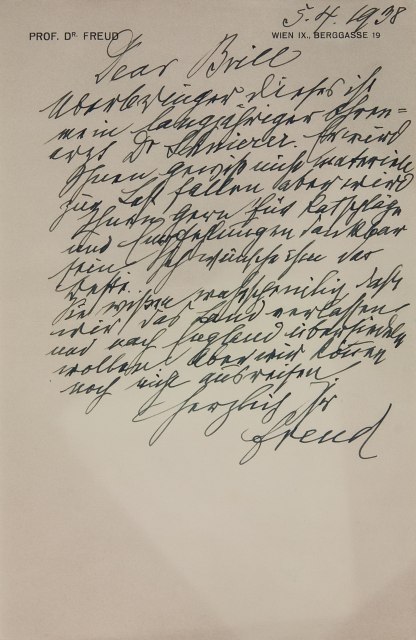 5.4.1938
PROF. DR. FREUD WIEN IX., BERGGASSE 19
Dear Brill
Überbringer dieses ist
mein langjähriger Ohren=
arzt Dr Er wird
Ihnen gewiß nicht materiell
zur Last fallen aber wird
Ihnen gern für Ratschläge
und Empfehlungen dankbar
sein. Ich wünsche ihm das
Beste.
Sie wissen wahrscheinlich daß
wir das Land verlassen
und nach England übersiedeln
wollen. Aber wir können
noch nicht ausreisen.
Herzlich Ihr
Freud